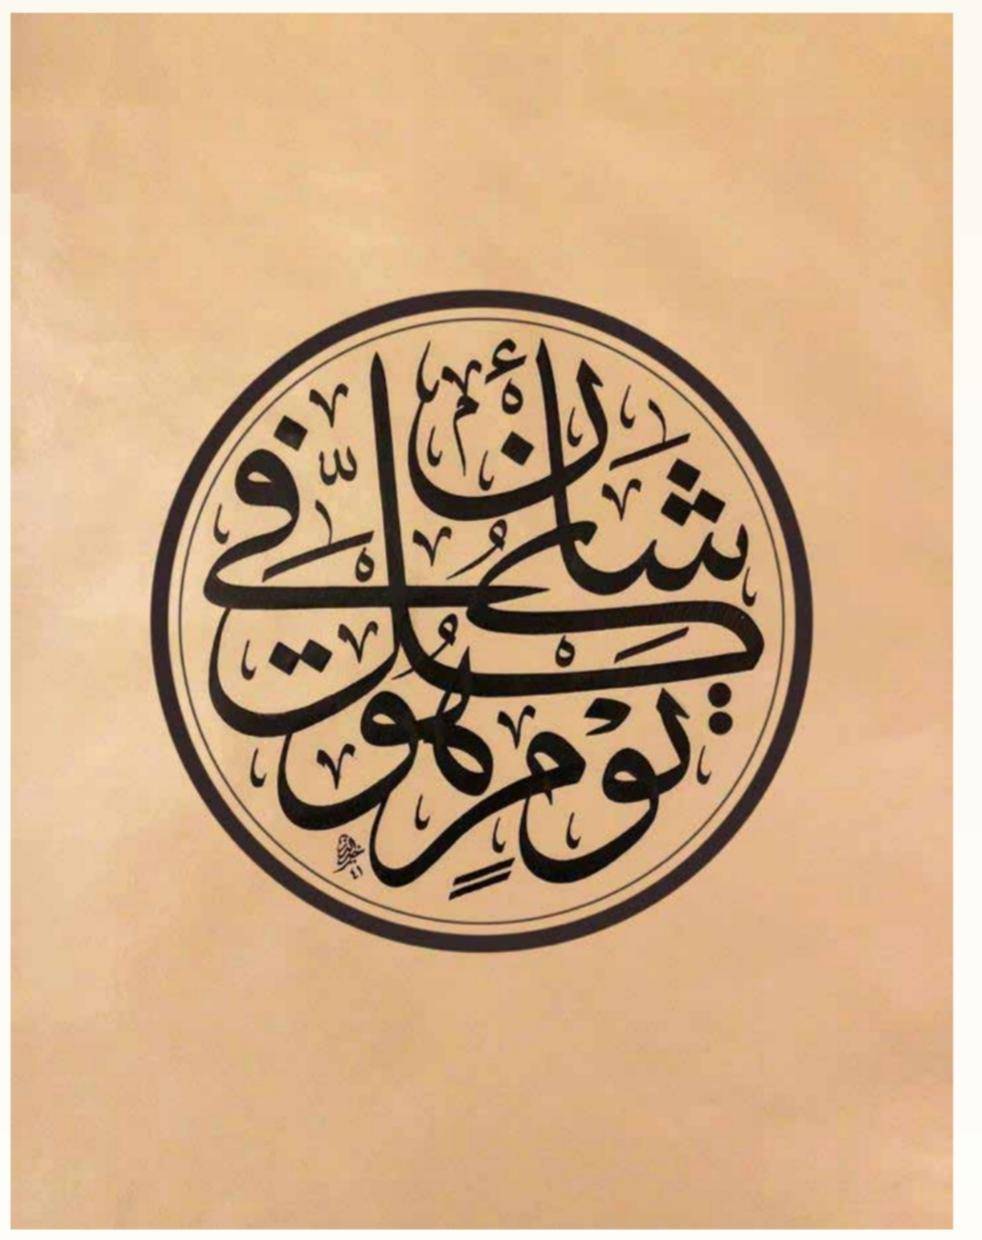 كُلَّ يَوْمٍ هُوَ فِي شَأْنٍ